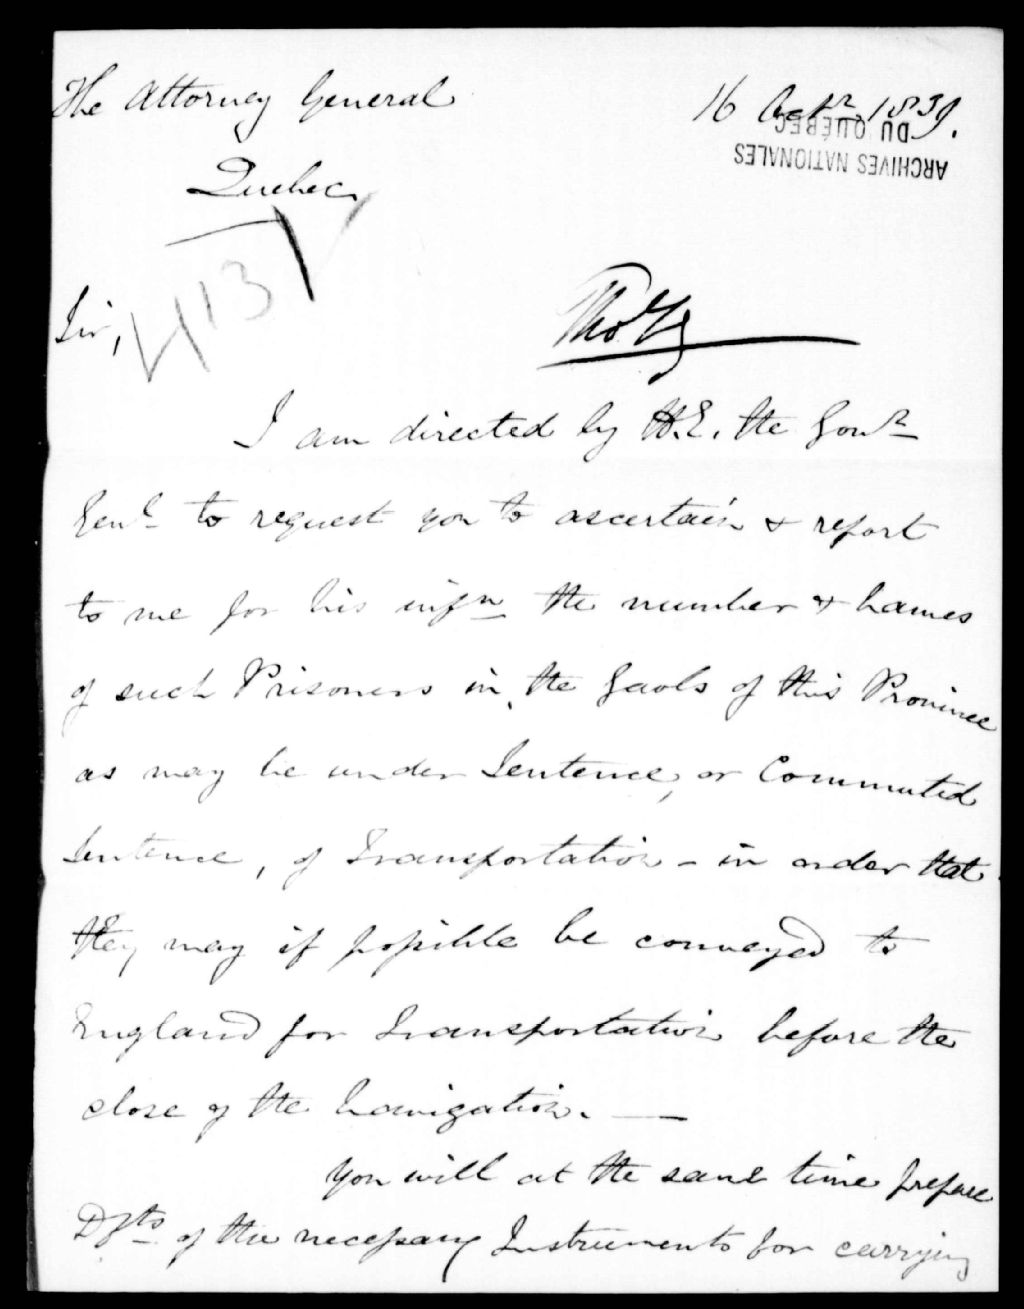 The Attorney General
16 Octr. 1839.
ARCHIVES NATIONALES
DU QUÉBEC
Quebec
4113
Sir,
I am directed by H.E. the Govr
Genl to request you to ascertain & report
to me for his infn the number & names
of such Prisoners in the Gaols of this Province
as may be under Sentence, or Commuted
Sentence, of Transportation - in order that
they may if possible be conveyed to
England for Transportation before the
close of the Navigation. —
You will at the same time prepare
Dfts of the necessary Instruments for carrying